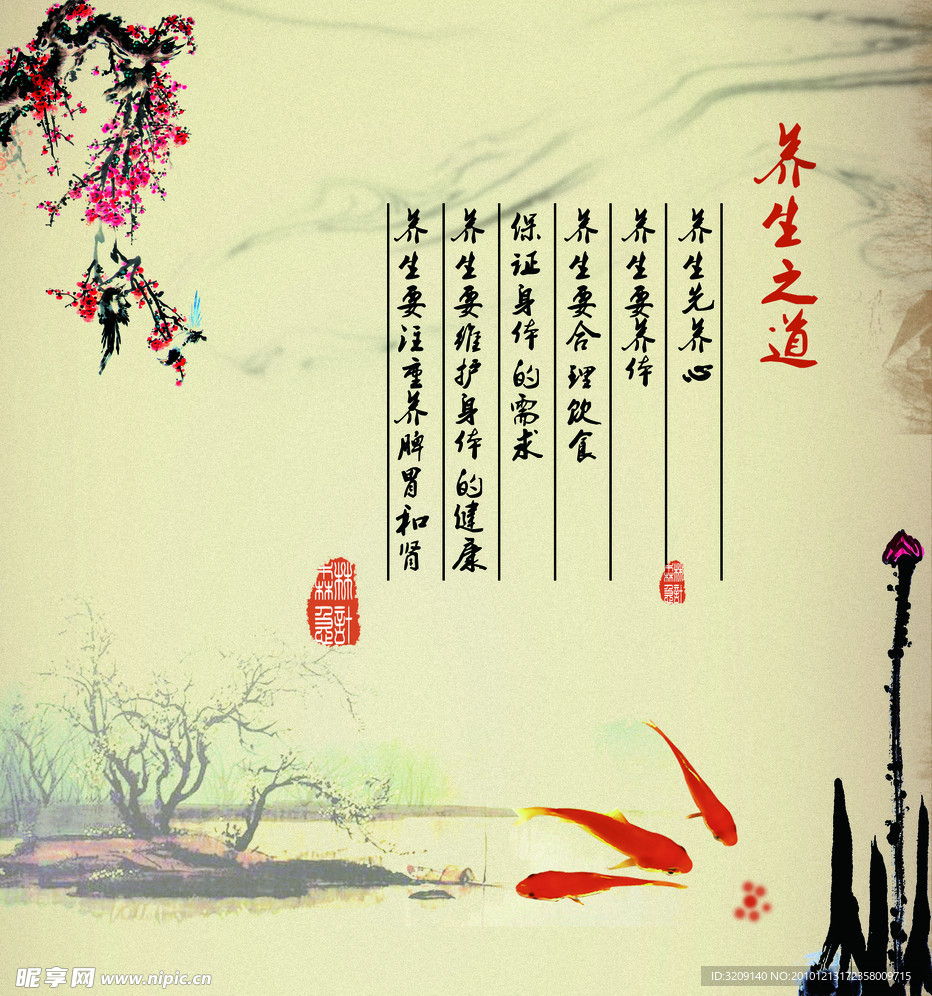 养生之道
养生先养心
养生要养体
养生要合理饮食
保证身体的需求
养生要维护身体的健康
养生要注重养脾胃和肾
昵享网 www.nipic.cn
ID:3209140 NO:20101213172358009715